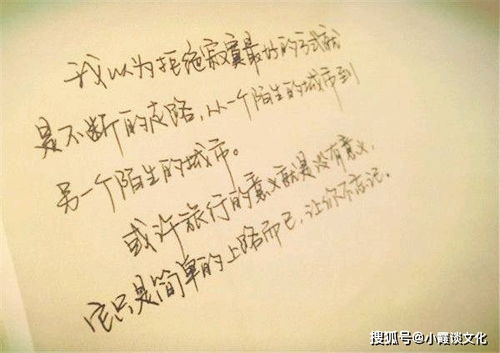 我以为拒绝寂寞最好的方式就
是不断的走路，从一个陌生的城市到
另一个陌生的城市。
或许旅行的意义就是没有意义，
它只是简单的上路而已，让你不忘记。
搜狐号@小霞谈文化